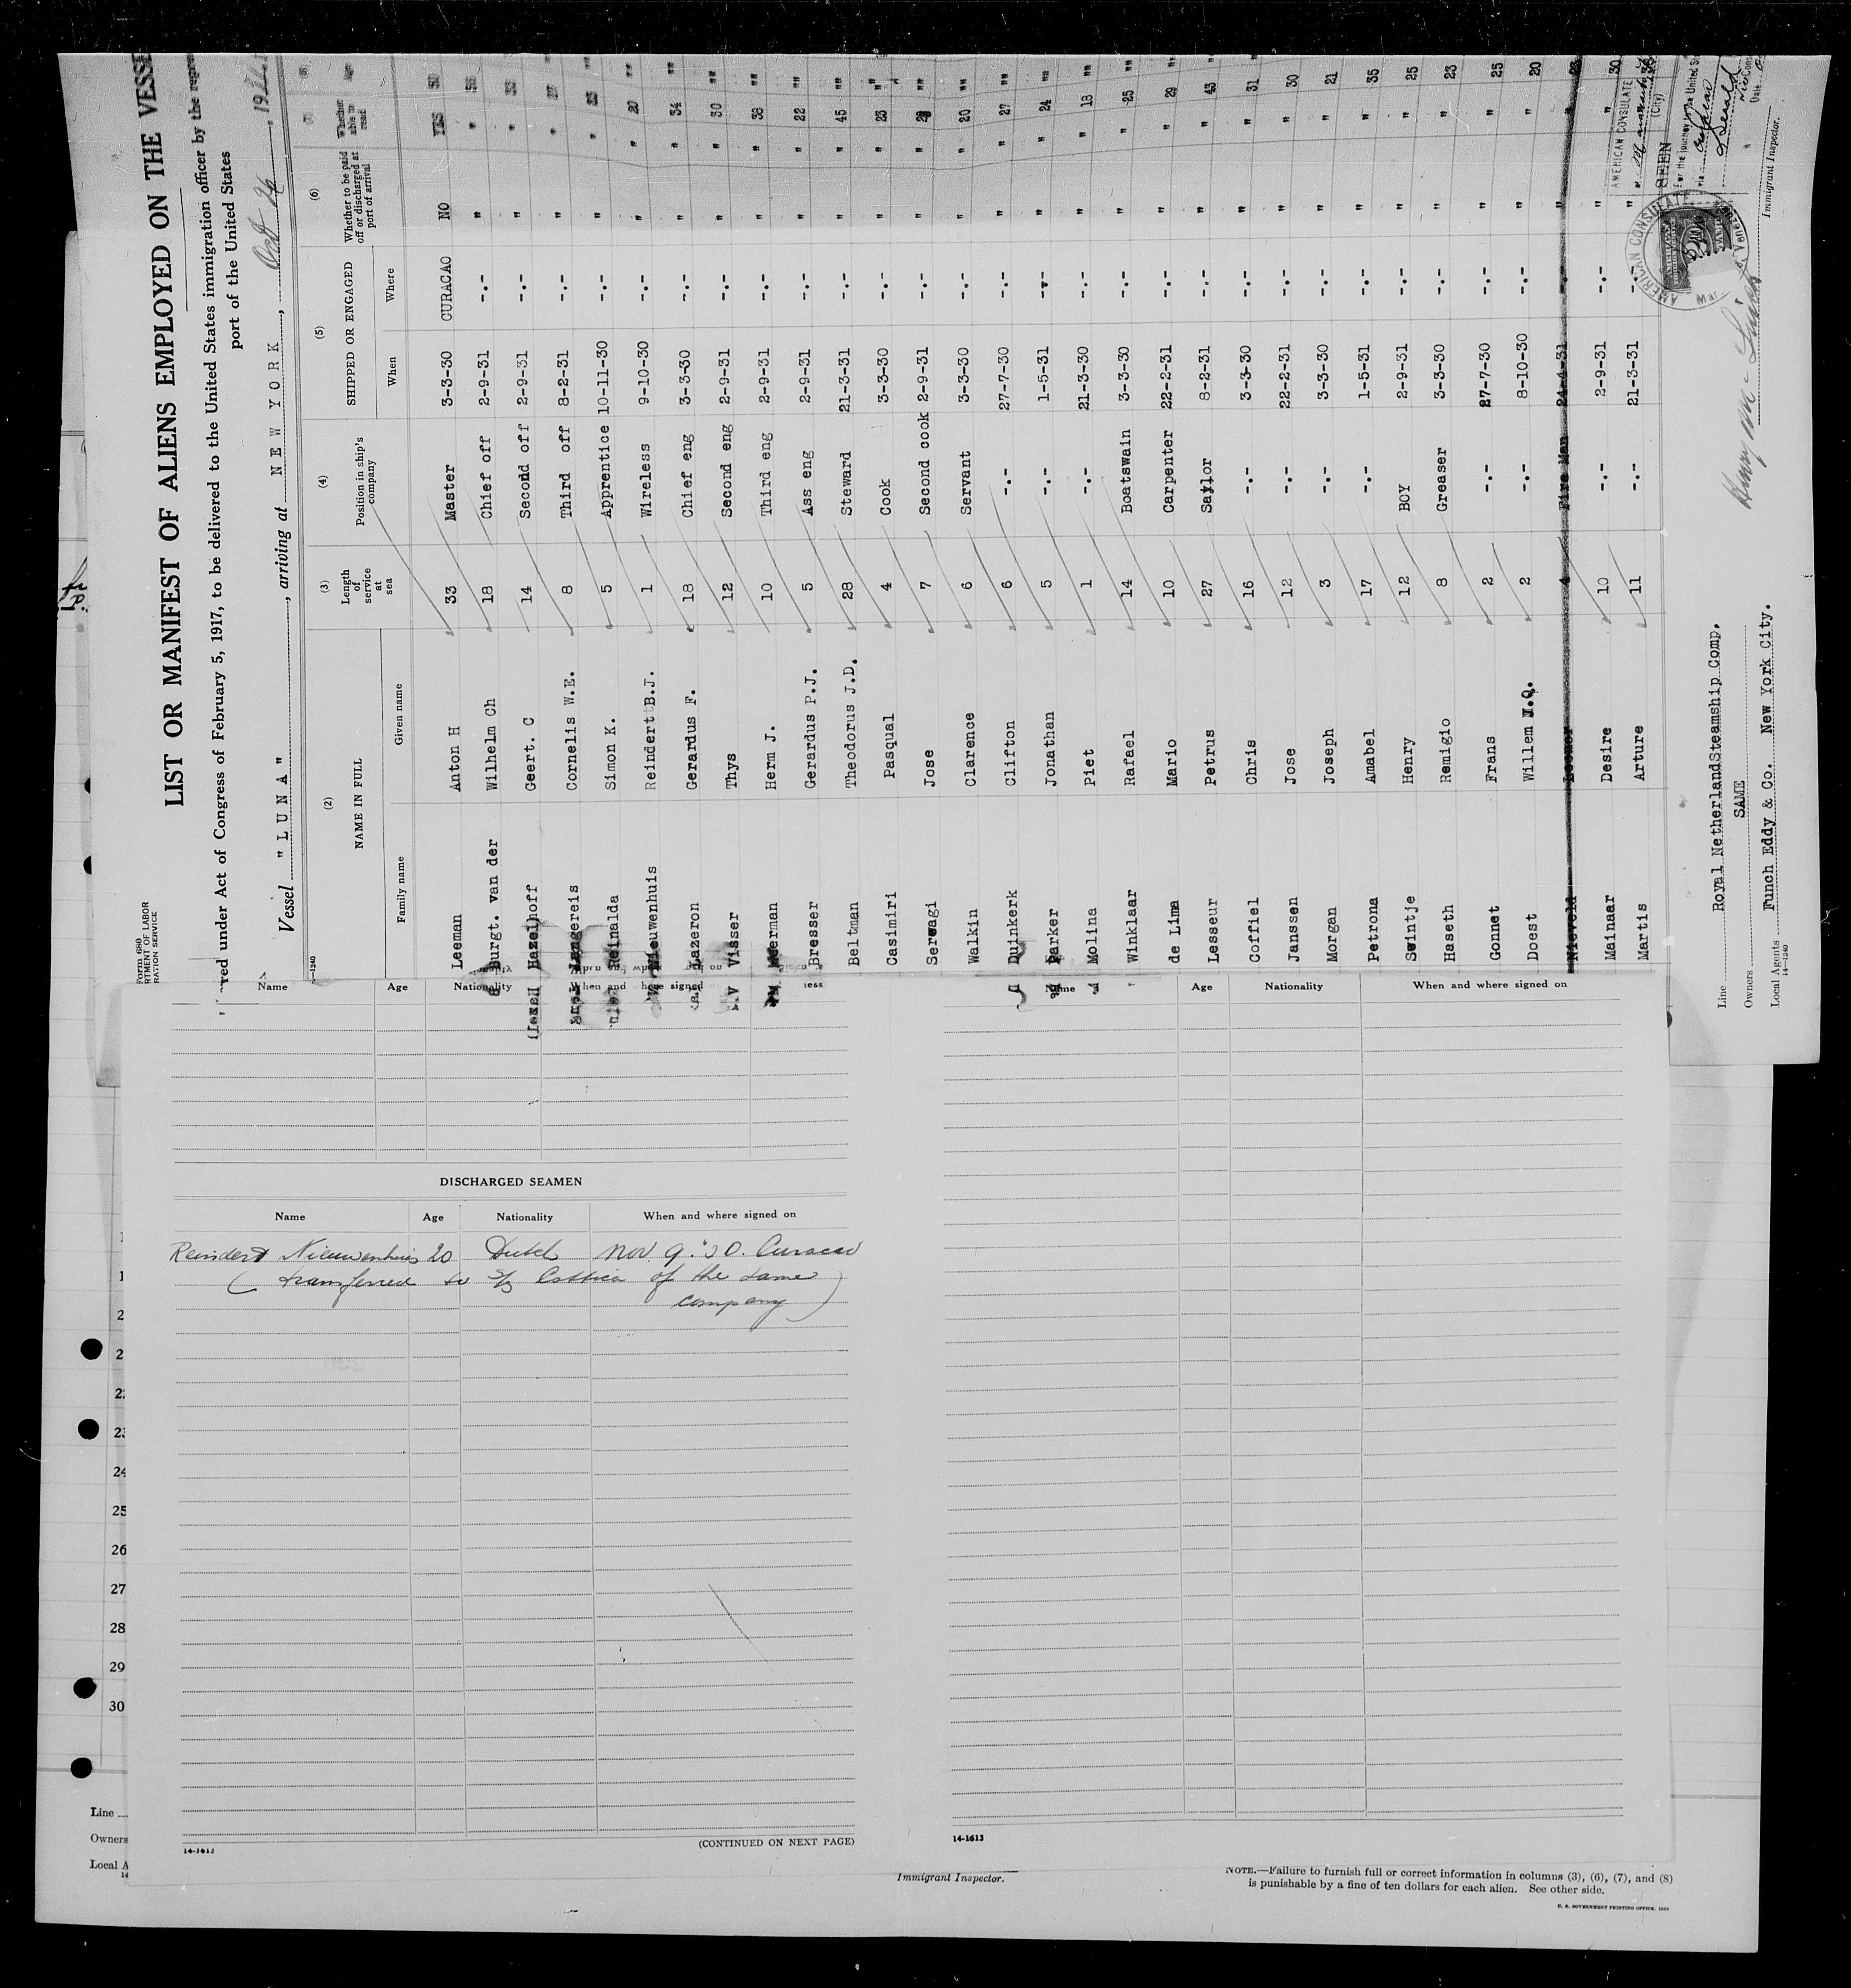 LIST OR MANIFEST OF ALIENS EMPLOYED ON THE VESSE
red under Act of Congress of February 5, 1917, to be delivered to the United States immigration officer by the repre
port of the United States
Vessel "LUNA", arriving at NEW YORK, Oct 26, 19
(2) (3) (4) (5) (6)
NAME IN FULL Length of service at sea Position in ship's company SHIPPED OR ENGAGED Whether to be paid off or discharged at port of arrival Whether able to read Age
Family name Given name When Where
Leeman Anton H 33 Master 3-3-30 CURACAO NO YES 50
Burgt. van der Wilhelm Ch 18 Chief off 2-9-31 -.- " "
Hazelhoff Geert. C 14 Second off 2-9-31 -.- " "
Langereis Cornelis W.E. 8 Third off 8-2-31 -.- " "
Reinalda Simon K. 5 Apprentice 10-11-30 -.- " "
Nieuwenhuis Reindert B.J. 1 Wireless 9-10-30 -.- " " 20 ""
Lazeron Gerardus F. 18 Chief eng 3-3-30 -.- " " 34 ""
Visser Thys 12 Second eng 2-9-31 -.- " " 30 ""
Meerman Herm J. 10 Third eng 2-9-31 -.- " " 38 ""
Bresser Gerardus P.J. 5 Ass eng 2-9-31 -.- " " 22 ""
Beltman Theodorus J.D. 28 Steward 21-3-31 -.- " " 45 ""
Casimiri Pasqual 4 Cook 3-3-30 -.- " " 23 "
Serwagi Jose 7 Second cook 2-9-31 -.- " " ""
Walkin Clarence 6 Servant 3-3-30 -.- " " 20 ""
Duinkerk Clifton 6 -.- 27-7-30 -.- " " 27 ""
Parker Jonathan 5 -.- 1-5-31 -.- " " 24
Molina Piet 1 -.- 21-3-30 -.- " " 18 ""
Winklaar Rafael 14 Boatswain 3-3-30 -.- " " 25 ""
de Lima Mario 10 Carpenter 22-2-31 -.- " " 29 "
Lesseur Petrus 27 Saylor 8-2-31 -.- " " 43
Coffiel Chris 16 -.- 3-3-30 -.- " " 31
Janssen Jose 12 -.- 22-2-31 -.- " " 30
Morgan Joseph 3 -.- 3-3-30 -.- " " 21
Petrona Amabel 17 -.- 1-5-31 -.- " " 35
Swintje Henry 12 BOY 2-9-31 -.- " " 25
Haseth Remigio 8 Greaser 3-3-30 -.- " " 23
Gonnet Frans 2 -.- 27-7-30 -.- " " 25
Doest Willem 2 -.- 8-10-30 -.- " " 20
Nieveld Leonor 4 Fire Man 24-4-31 -.- " "
Mainaar Desire 10 -.- 2-9-31 -.- " " 30
Martis Arture 11 -.- 21-3-31 -.- " "
AMERICAN CONSULATE
(City)
SEEN
For the journey to the United S
via
Date
AMERICAN CONSULATE
Line Royal NetherlandSteamship Comp.
Owners SAME
Local Agents Funch Eddy & Co. New York City.
14-1240
Immigrant Inspector.
Name Age Nationality When and where signed on
Name Age Nationality When and where signed on
DISCHARGED SEAMEN
Name Age Nationality When and where signed on
Reindert Nieuwenhuis 20 Dutch Nov 9. '30. Curacao
( transferred to s/s Cottica of the same
company )
24
25
26
27
28
29
30
Line
Owners
Local A
14-1613 (CONTINUED ON NEXT PAGE)
14-1613
Immigrant Inspector.
NOTE.—Failure to furnish full or correct information in columns (3), (6), (7), and (8)
is punishable by a fine of ten dollars for each alien. See other side.
U. S. GOVERNMENT PRINTING OFFICE